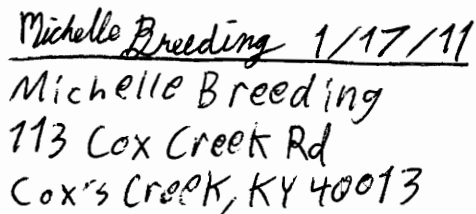 Michelle Breeding 1/17/11
Michelle Breeding
113 Cox Creek Rd
Cox's Creek, KY 40013